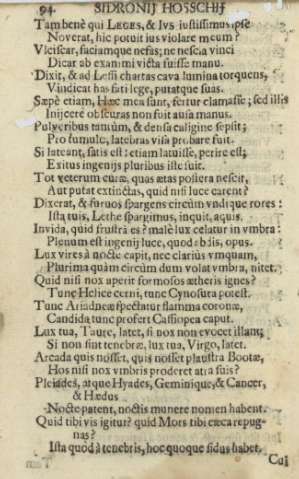 94. SIDRONII HOSSCHII
Tam benè qui LEGES, & IVS iustissimus ipse
Noverat, hîc potuit ius violare meum?
Vlciscar, faciamque nefas; ne nescia vinci
Dicar ab exanimi victa fuisse manu.
Dixit, & ad Lessi chartas cava lumina torquens,
Vindicat has fati lege, putatque suas.
Sæpè etiam, Hæc mea sunt, fertur clamasse; sed illis
Inijcere obscuras non fuit ausa manus.
Pulveribus tantùm, & densa caligine sepsit;
Pro tumulo, latebras visa probare fuit.
Si lateant, satis est: etiam latuisse, perire est;
Exitus ingenijs pluribus iste fuit.
Tot veterum curæ, quas ætas postera nescit,
Aut putat extinctas, quid nisi luce carent?
Dixerat, & furvos spargens circùm vndique rores:
Ista tuis, Lethe spargimus, inquit, aquis.
Invida, quid frustrà es? malè lux celatur in vmbra:
Plenum est ingenij luce, quod abdis, opus.
Lux vires à nocte capit, nec clariùs vmquam,
Plurima quàm circùm dum volat vmbra, nitet.
Quid nisi nox aperit formosos ætheris ignes?
Tunc Helice cerni, tunc Cynosura potest.
Tunc Ariadneæ spectatur flamma coronæ,
Candida tunc profert Cassiopea caput.
Lux tua, Taure, latet, si nox non evocet illam;
Si non sint tenebræ, lux tua, Virgo, latet.
Arcada quis nosset, quis nosset plaustra Bootæ,
Hos nisi nox vmbris proderet atra suis?
Pleiades, atque Hyades, Geminique, & Cancer,
& Hædus
Nocte patent, noctis munere nomen habent.
Quid tibi vis igitur? quid Mors tibi cæca repug-
nas?
Ista quòd à tenebris, hoc quoque sidus habet.
Cui